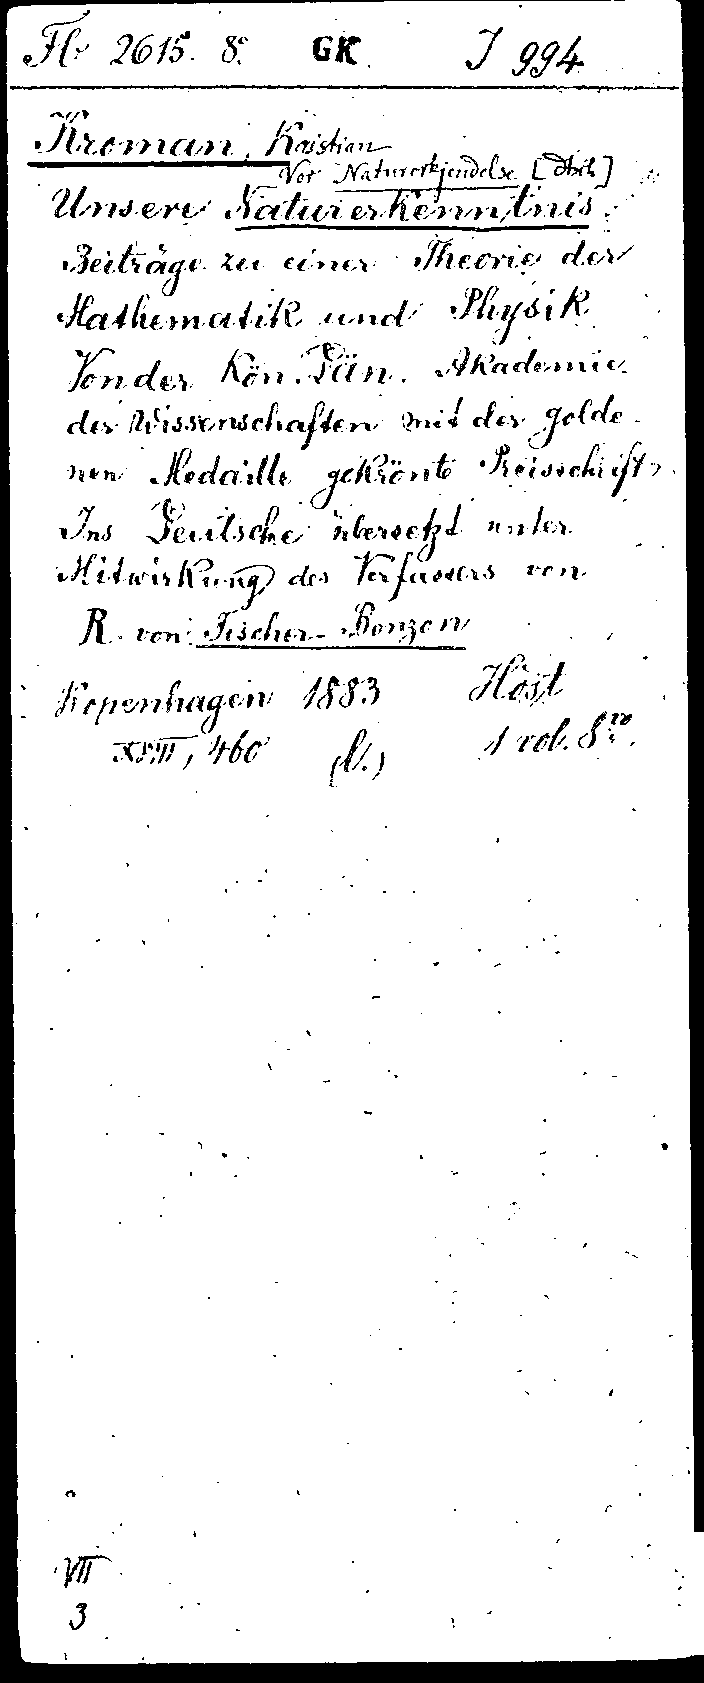 Fb 2615. 8°. GK J 994
Kroman, Kristian
Vor Naturerkjendelse [dtsch]
Unsere Naturerkenntnis.
Beiträge zu einer Theorie der
Mathematik und Physik
Von der Kön. Dän. Akademie
der Wissenschaften mit der golde-
nen Medaille gekrönte Preisschrift.
Ins Deutsche übersetzt unter
Mitwirkung des Verfassers von
R. von Fischer-Benzon
Kopenhagen 1883 Höst
XVIII, 460 (b.) 1 vol. 8vo.
VII
3